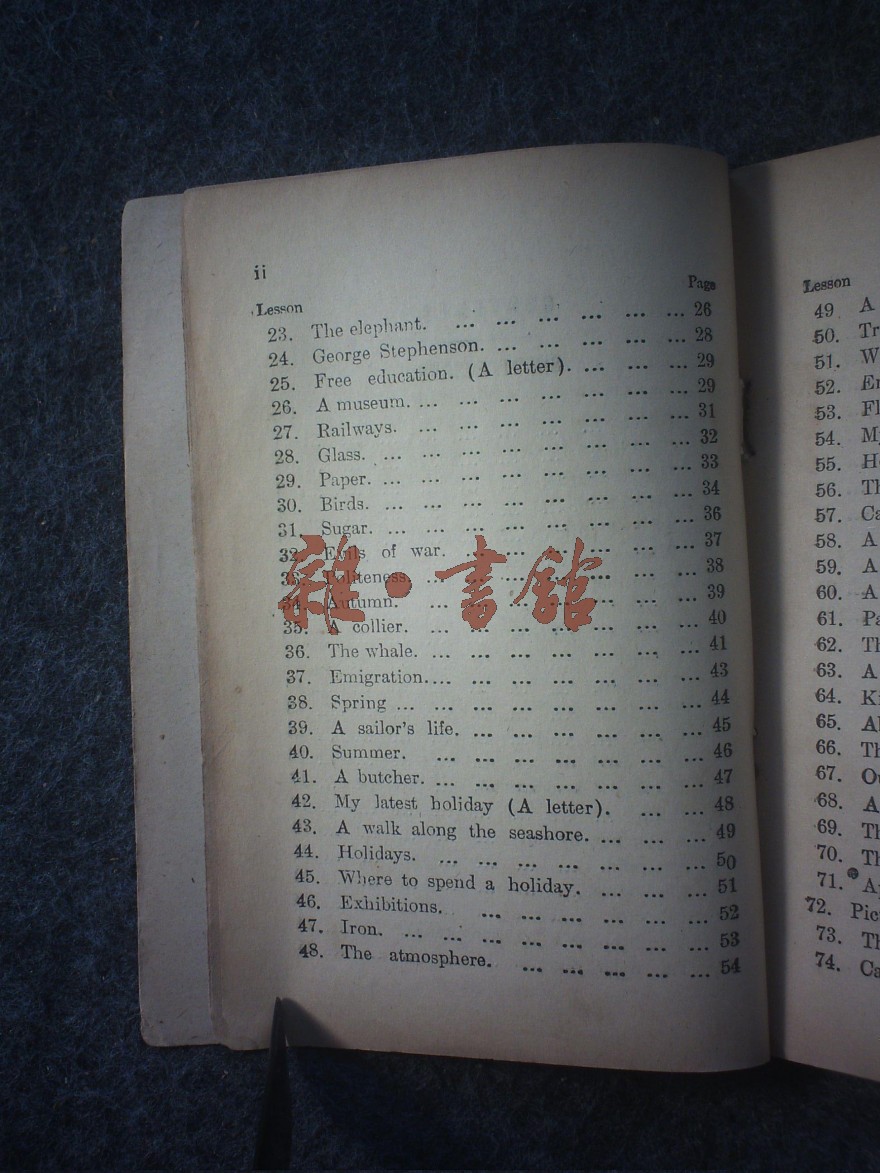 ii
Lesson Page
23. The elephant. ... ... ... ... ... ... 26
24. George Stephenson. ... ... ... ... ... 28
25. Free education. (A letter). ... ... ... ... 29
26. A museum. ... ... ... ... ... ... ... 29
27. Railways. ... ... ... ... ... ... ... 31
28. Glass. ... ... ... ... ... ... ... ... 32
29. Paper. ... ... ... ... ... ... ... ... 33
30. Birds. ... ... ... ... ... ... ... ... 34
31. Sugar. ... ... ... ... ... ... ... ... 36
32. Evils of war. ... ... ... ... ... ... 37
33. Politeness. ... ... ... ... ... ... ... 38
34. Autumn. ... ... ... ... ... ... ... 39
35. A collier. ... ... ... ... ... ... ... 40
36. The whale. ... ... ... ... ... ... ... 41
37. Emigration.... ... ... ... ... ... ... 43
38. Spring ... ... ... ... ... ... ... ... 44
39. A sailor's life. ... ... ... ... ... ... 45
40. Summer. ... ... ... ... ... ... ... 46
41. A butcher. ... ... ... ... ... ... ... 47
42. My latest holiday (A letter). ... ... ... 48
43. A walk along the seashore. ... ... ... 49
44. Holidays. ... ... ... ... ... ... ... 50
45. Where to spend a holiday. ... ... ... ... 51
46. Exhibitions. ... ... ... ... ... ... 52
47. Iron. ... ... ... ... ... ... ... ... 53
48. The atmosphere. ... ... ... ... ... 54
雜·書館
Lesson
49 A
50.
51.
52.
53.
54.
55.
56.
57.
58. A
59. A
60. A
61.
62.
63. A
64.
65.
66.
67.
68. A
69.
70.
71.
72.
73.
74.